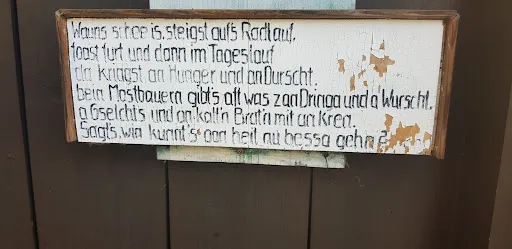 Wauns schee is, steigst auf's Radl auf,
foast furt und dann im Tageslauf
da kriagst an Hunger und an Durscht.
bein Mostbauern gibt's aft was z'an Dringa und a Wurscht,
a Gselcht's und an koit'n Brat'n mit an Kren.
Sagt's, wia kunnt's oan heit au bessa gehn?